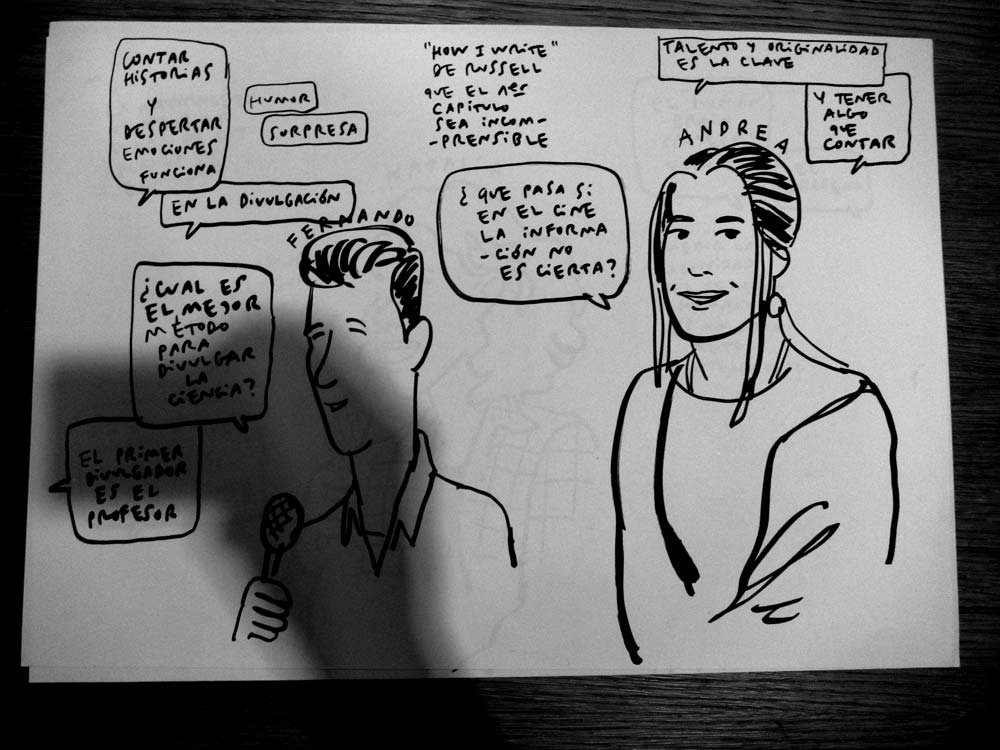 CONTAR
HISTORIAS
Y
DESPERTAR
EMOCIONES
FUNCIONA
HUMOR
SORPRESA
EN LA DIVULGACIÓN
"HOW I WRITE"
DE RUSSELL
QUE EL 1er
CAPÍTULO
SEA INCOM-
-PRENSIBLE
TALENTO Y ORIGINALIDAD
ES LA CLAVE
Y TENER
ALGO
QUE
CONTAR
FERNANDO
ANDREA
¿QUE PASA SI
EN EL CINE
LA INFORMA
-CIÓN NO
ES CIERTA?
¿CUAL ES
EL MEJOR
MÉTODO
PARA
DIVULGAR
LA
CIENCIA?
EL PRIMER
DIVULGADOR
ES EL
PROFESOR